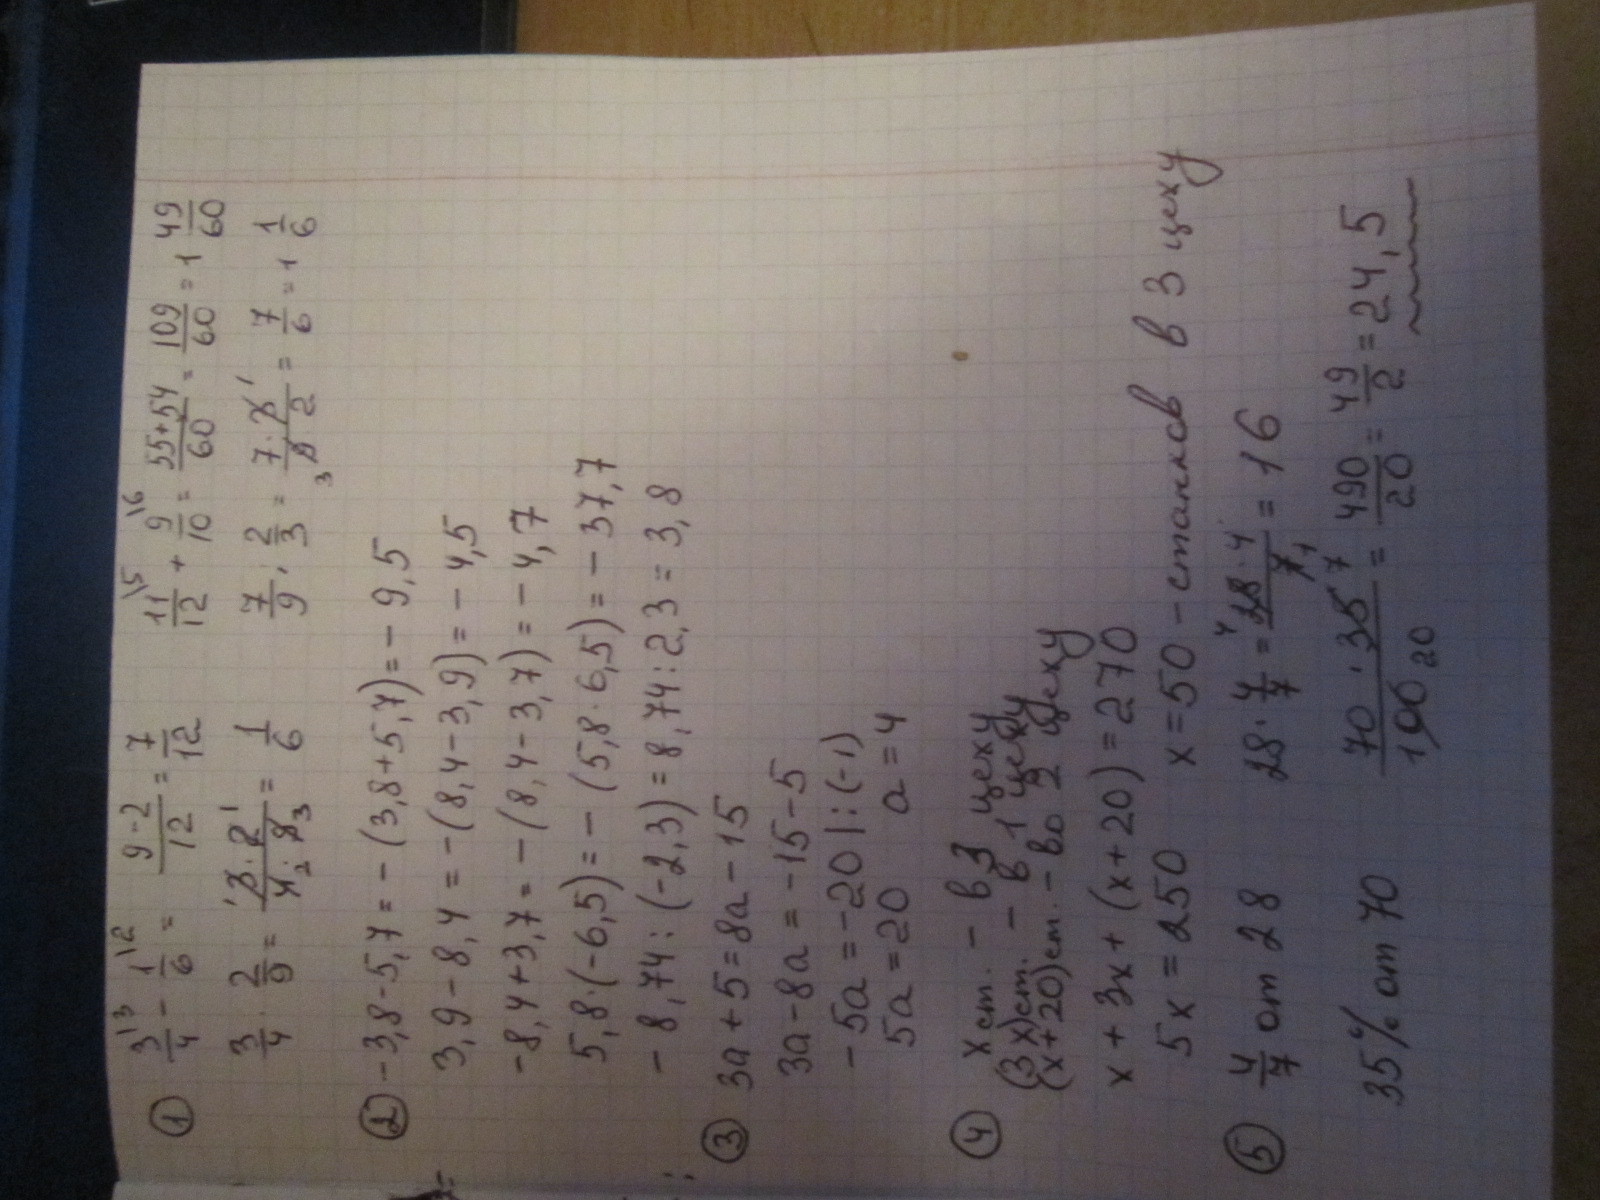 ① 3/4 \3 - 1/6 \2 = 9-2/12 = 7/12 11/12 \5 + 9/10 \6 = 55+54/60 = 109/60 = 1 49/60
3/4 · 2/9 = 3·2/4·9 = 1/6 7/9 : 2/3 = 7·3/9·2 = 7/6 = 1 1/6
② -3,8-5,7=-(3,8+5,7)=-9,5
3,9-8,4=-(8,4-3,9)=-4,5
-8,4+3,7=-(8,4-3,7)=-4,7
5,8·(-6,5)=-(5,8·6,5)=-37,7
-8,74:(-2,3)=8,74:2,3=3,8
③ 3a+5=8a-15
3a-8a=-15-5
-5a=-20|:(-1)
5a=20 a=4
④ x ст. - в 3 цеху
(3x)ст. - в 1 цеху
(x+20)ст. - во 2 цеху
x+3x+(x+20)=270
5x=250 x=50-станков в 3 цеху
⑤ 4/7 от 28 28·4/7=28·4/7=16
35% от 70 70·35/100=490/20=49/2=24,5